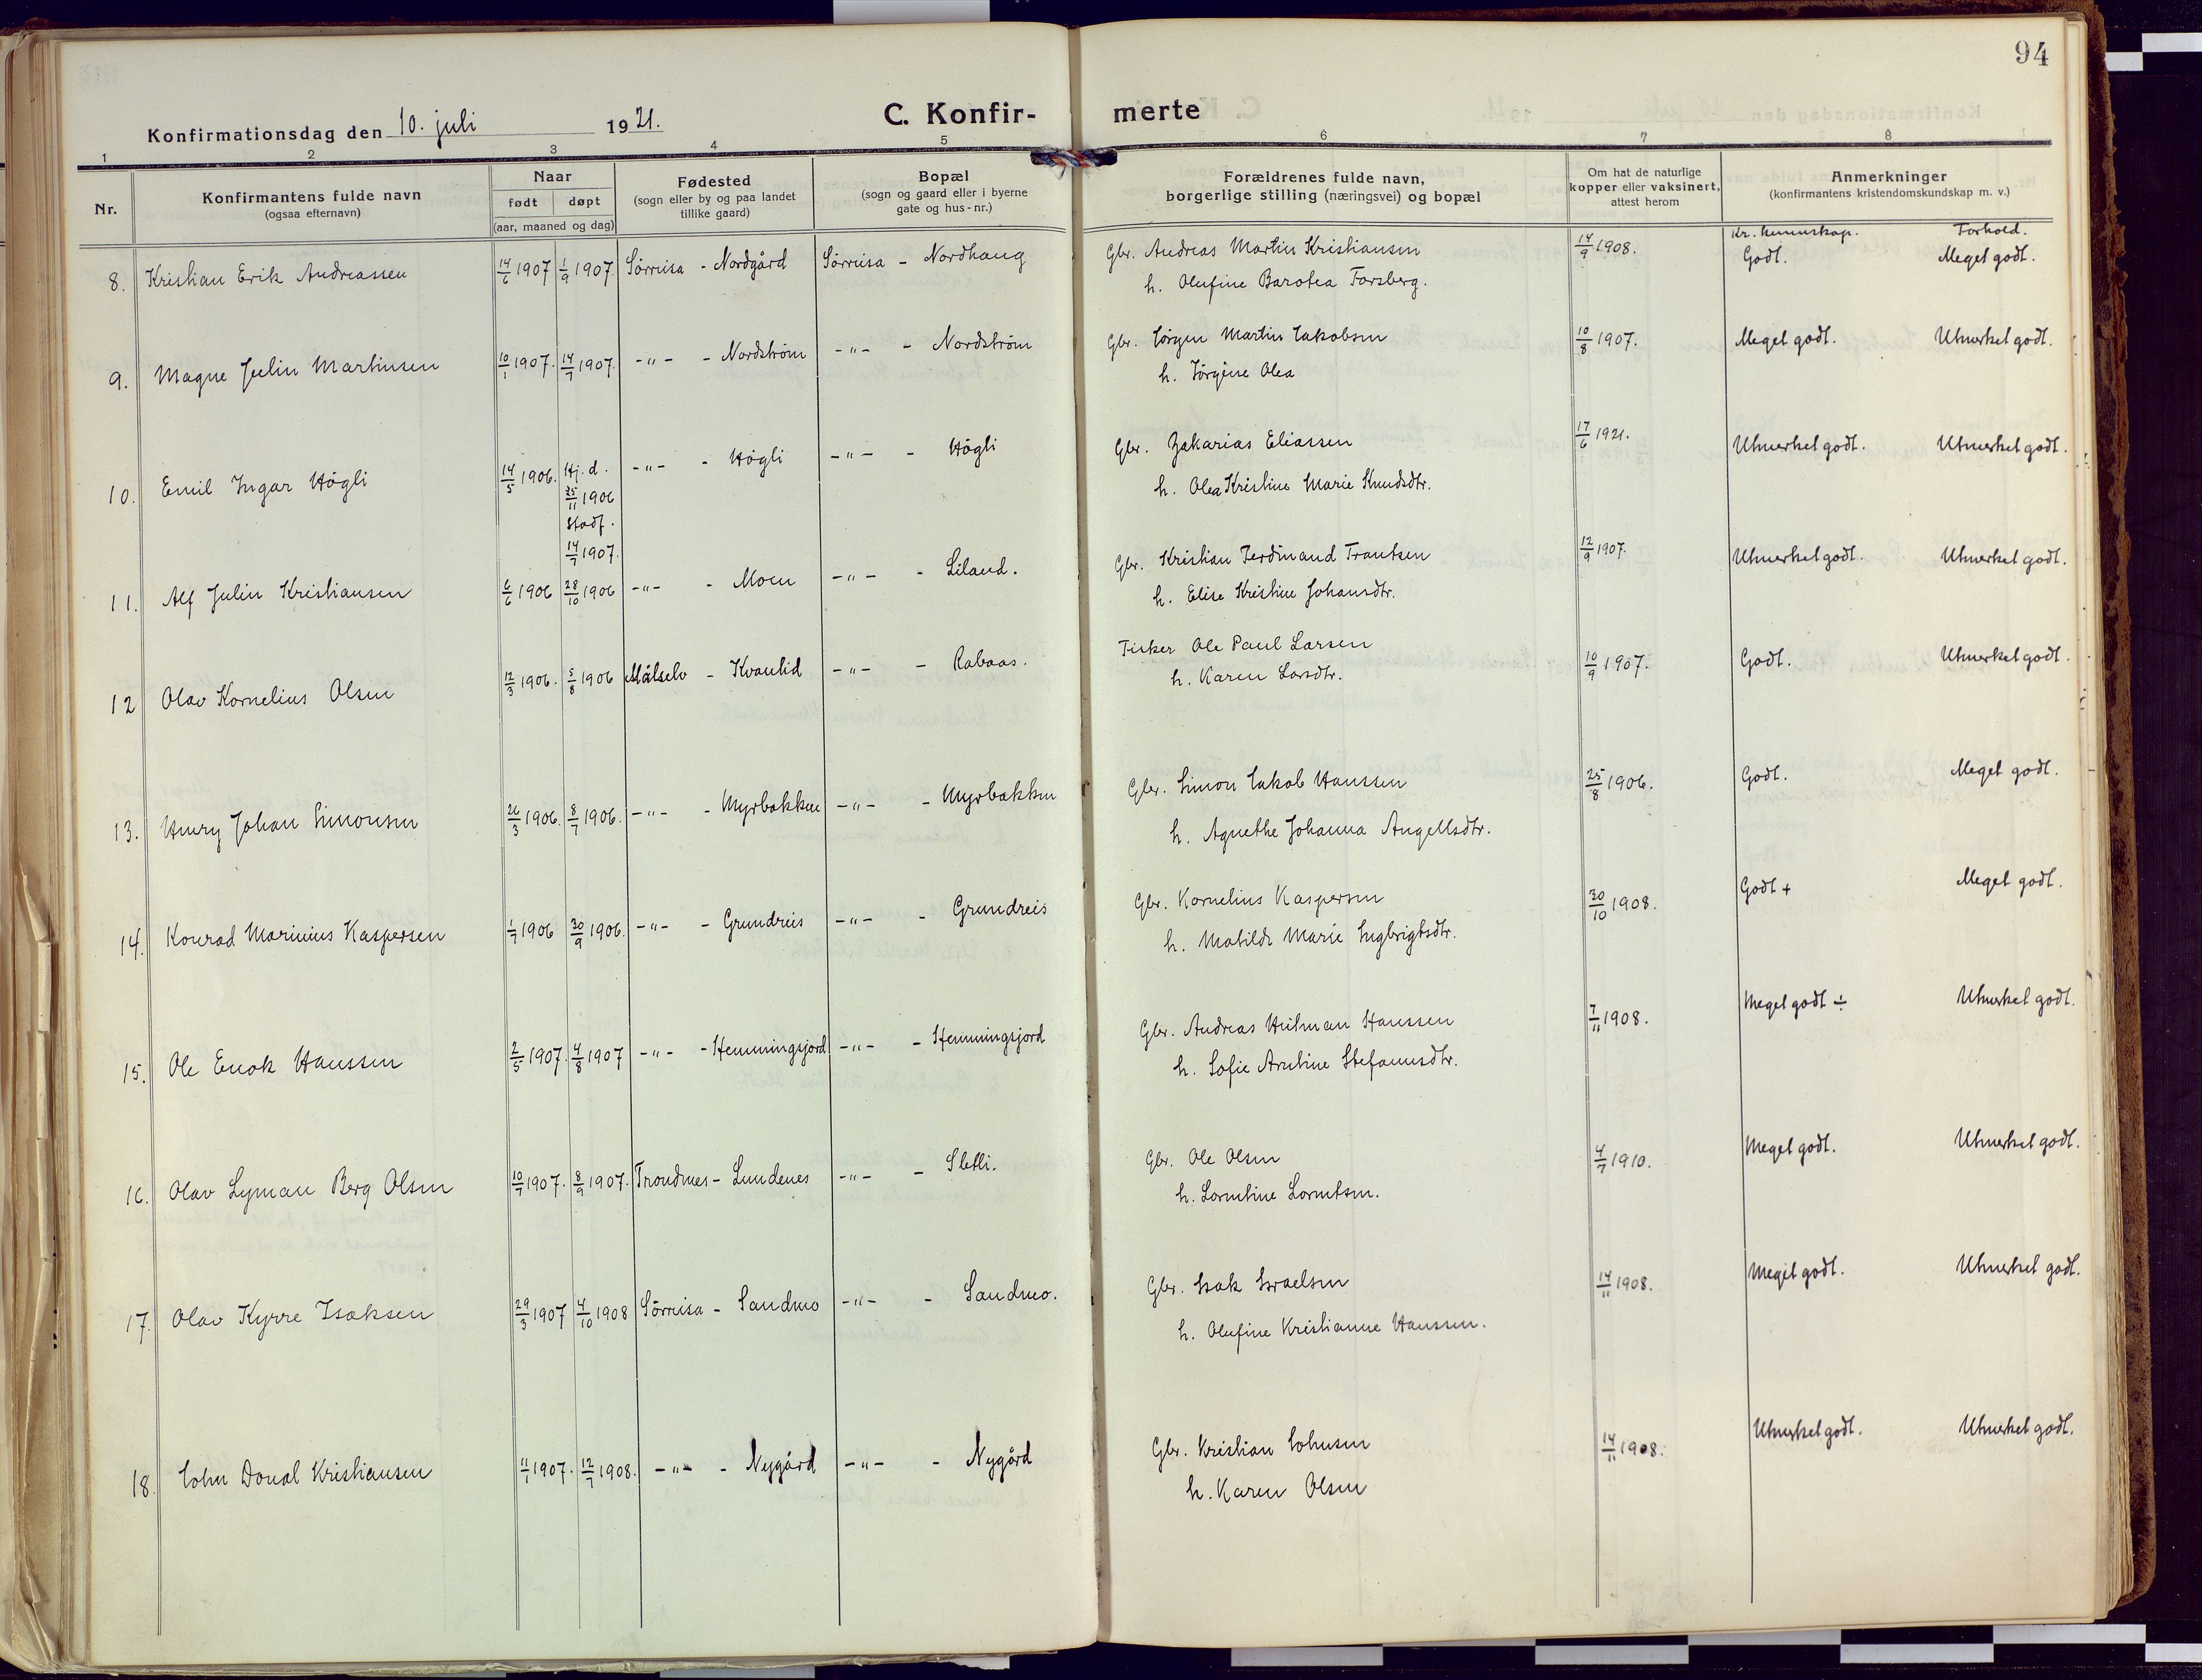 94
Konfirmationsdag den 10. juli 1921.
C. Konfir-merte
1 2 3 4 5 6 7 8
Nr.
Konfirmantens fulde navn
(ogsaa efternavn)
Naar
født døpt
(aar, maaned og dag)
Fødested
(sogn eller by og paa landet
tillike gaard)
Bopæl
(sogn og gaard eller i byerne
gate og hus-nr.)
Forældrenes fulde navn,
borgerlige stilling (næringsvei) og bopæl
Om hat de naturlige
kopper eller vaksinert,
attest herom
Anmerkninger
(konfirmantens kristendomskundskap m. v.)
Kr. kunnskap. Forhold.
8. Kristian Erik Andreassen 14/6 1907 1/9 1907. Sörreisa - Nordgård Sörreisa - Nordhaug Gbr. Andreas Martin Kristiansen 14/9 1908. Godt. Meget godt.
h. Olufine Barotea Forsberg.
9. Magne Julin Martinsen 10/1 1907. 14/7 1907. -"- - Nordström -"- - Nordström Gbr. Jörgen Martin Jakobsen 10/8 1907. Meget godt. Utmerket godt.
h. Jörgine Olea
10. Emil Ingar Högli 14/5 1906. Hj. d. -"- - Högli -"- - Högli Gbr. Zakarias Eliassen 17/6 1921. Utmerket godt. Utmerket godt.
25/11 1906
Stadf.
14/7 1907.
h. Olea Kristine Marie Knudsdtr.
11. Alf Julin Kristiansen 6/6 1906 28/10 1906 -"- - Moen -"- - Liland. Gbr. Kristian Ferdinand Trautsen 12/9 1907. Utmerket godt. Utmerket godt.
h. Elise Kristine Johansdtr.
12 Olav Kornelius Olsen 12/3 1906. 5/8 1906 Målselv - Kvanlid -"- - Rabaas. Fisker Ole Paul Larsen 10/9 1907. Godt. Utmerket godt.
h. Karen Larsdtr.
13. Henry Johan Simonsen 26/3 1906. 8/7 1906. -"- - Myrbakken -"- - Myrbakken Gbr. Simon Jakob Hanssen 25/8 1906. Godt. Meget godt.
h. Agnethe Johanna Angellsdtr.
14. Konrad Marinius Kaspersen 1/7 1906 30/9 1906. -"- - Grundreis -"- - Grundreis Gbr. Kornelius Kaspersen 30/10 1908. Godt + Meget godt.
h. Matilde Marie Ingbrigtsdtr.
15. Ole Enok Hanssen 2/5 1907. 4/8 1907 -"- - Hemmingsjord -"- - Hemmingsjord Gbr. Andreas Hilman Hanssen 7/11 1908. Meget godt ÷ Utmerket godt.
h. Sofie Arntine Stefanusdtr.
16. Olav Lyman Berg Olsen 10/7 1907. 8/9 1907. Trondnes - Lundenes -"- - Sletli. Gbr. Ole Olsen 4/7 1910. Meget godt. Utmerket godt.
h. Lorentine Lorentsen.
17. Olav Kyrre Isaksen 29/3 1907 4/10 1908 Sörreisa - Sandmo -"- - Sandmo. Gbr. Isak Israelsen 14/11 1908. Meget godt. Utmerket godt.
h. Olufine Kristianne Hanssen.
18. John Donal Kristiansen 11/1 1907. 12/7 1908. -"- - Nygård -"- - Nygård Gbr. Kristian Johnsen 14/11 1908. Utmerket godt. Utmerket godt.
h. Karen Olsen